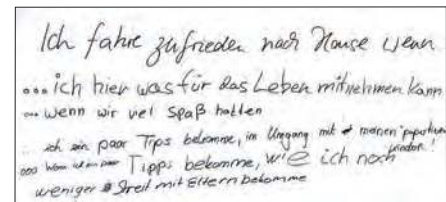 Ich fahre zufrieden nach Hause wenn
...ich hier was für das Leben mitnehmen kann
...wenn wir viel Spaß hatten
... ich ein paar Tips bekomme, im Umgang mit meinen
... Tipps bekomme, wie ich noch
weniger Streit mit Eltern bekomme